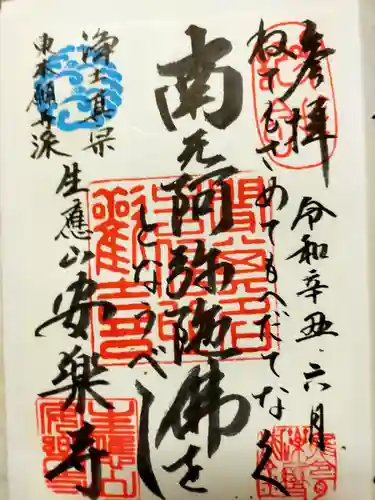 参拝
令和辛丑、六月
ねてもさめてもへだてなく
南无阿弥陀佛を
となうべし
浄土真宗
東本願寺派
生應山 安樂寺